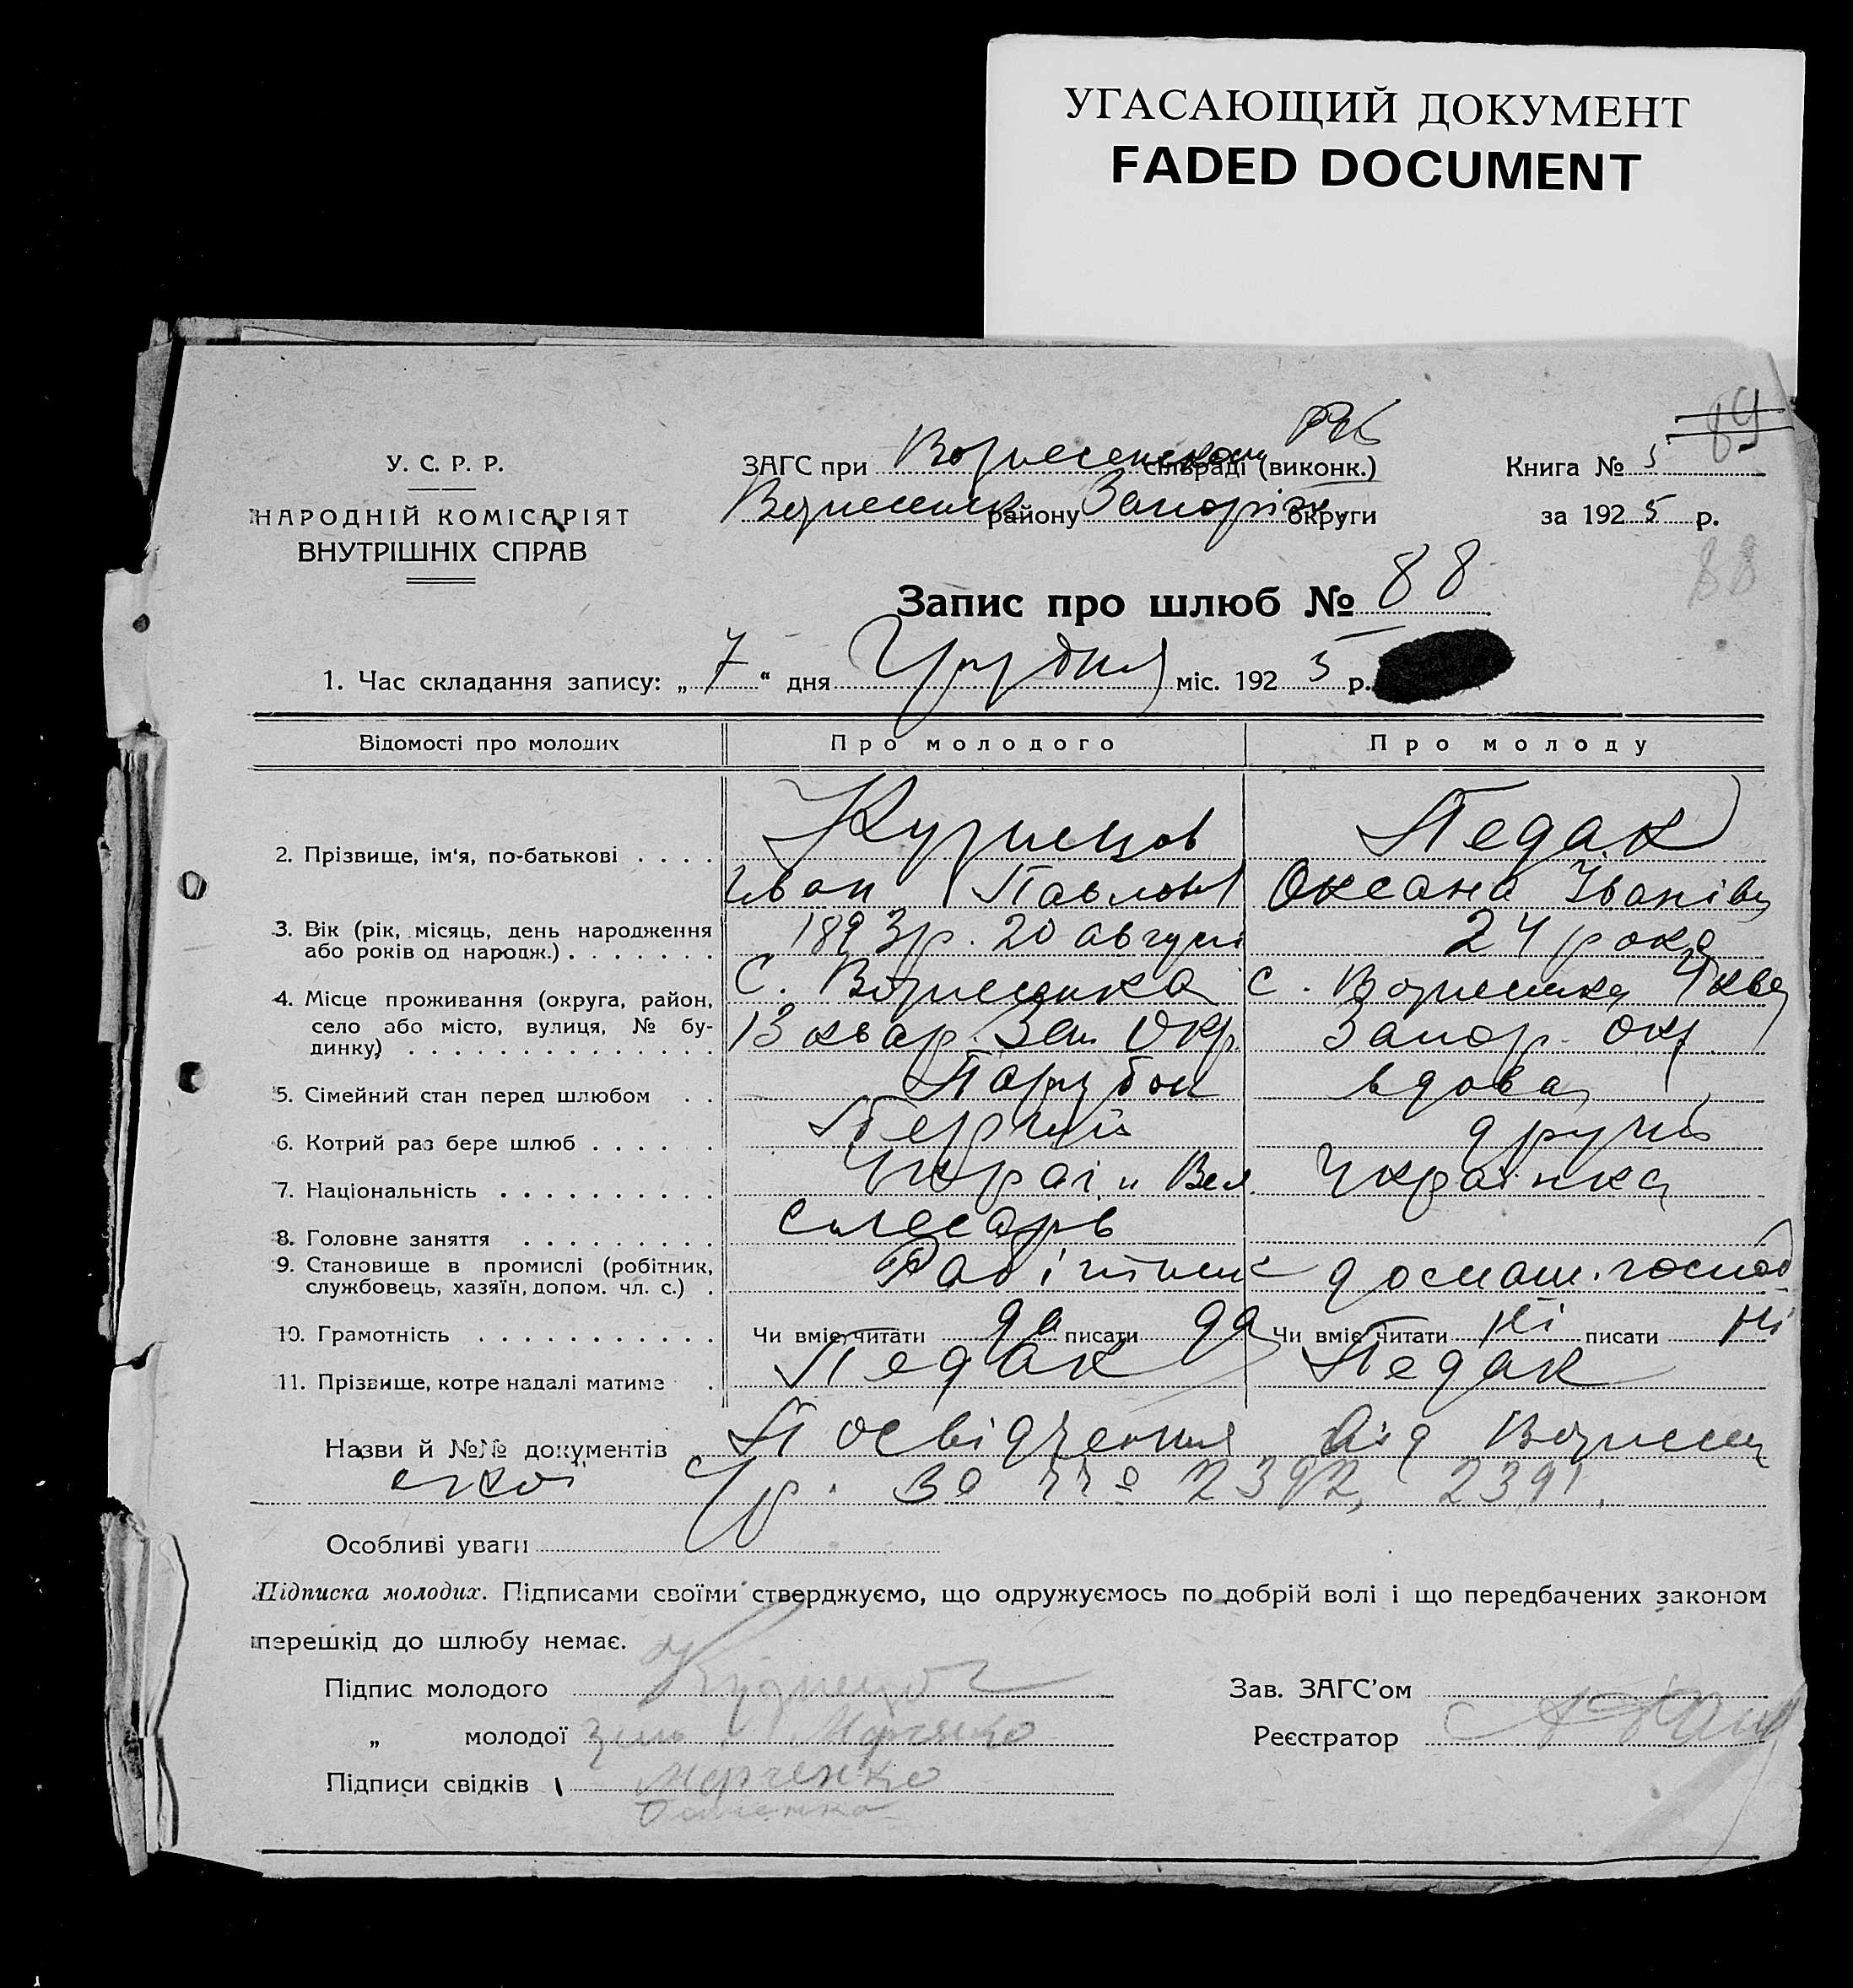 УГАСАЮЩИЙ ДОКУМЕНТ
FADED DOCUMENT
У. С. Р. Р.
НАРОДНІЙ КОМІСАРІЯТ
ВНУТРІШНІХ СПРАВ
ЗАГС при Вознесенском сільраді (виконк.) РВК
Вознесенск району Запоріж. округи
Книга № 5
89
за 1925 р.
88
Запис про шлюб № 88
1. Час складання запису: „ 7 “ дня Грудня міс. 1925 р.
Відомості про молодих Про молодого Про молоду
2. Прізвище, ім'я, по-батькові . . . . Кузнецов Педак
Иван Павлов Оксана Іванівн
3. Вік (рік, місяць, день народження або років од народж.) . . . . . . . 1893 р. 20 август 24 рока
4. Місце проживання (округа, район, село або місто, вулиця, № будинку) . . . . С. Вознесенка 13 квар. Зап. Окр. с. Вознесенка 4 квар Запор. Окр.
5. Сімейний стан перед шлюбом . . Парубок вдова
6. Котрий раз бере шлюб . . . . . . Перший другий
7. Національність . . . . . . . . . . Украі. и Вел. Українка
8. Головне заняття . . . . . . . . . слесарь
9. Становище в промислі (робітник, службовець, хазяїн, допом. чл. с.) . Робітник домаш. господ
10. Грамотність . . . . . . . . . . . Чи вміє читати да писати да Чи вміє читати ні писати ні
11. Прізвище, котре надалі матиме . Педак Педак
Назви й №№ документів Посвідчення від Вознесен
ської с/р. за №№ 2392, 2391.
Особливі уваги
Підписка молодих. Підписами своїми стверджуємо, що одружуємось по добрій волі і що передбачених законом
перешкід до шлюбу немає.
Підпис молодого Кузнецов Зав. ЗАГС'ом
„ молодої Марченко Реєстратор
Підписи свідків Марченко